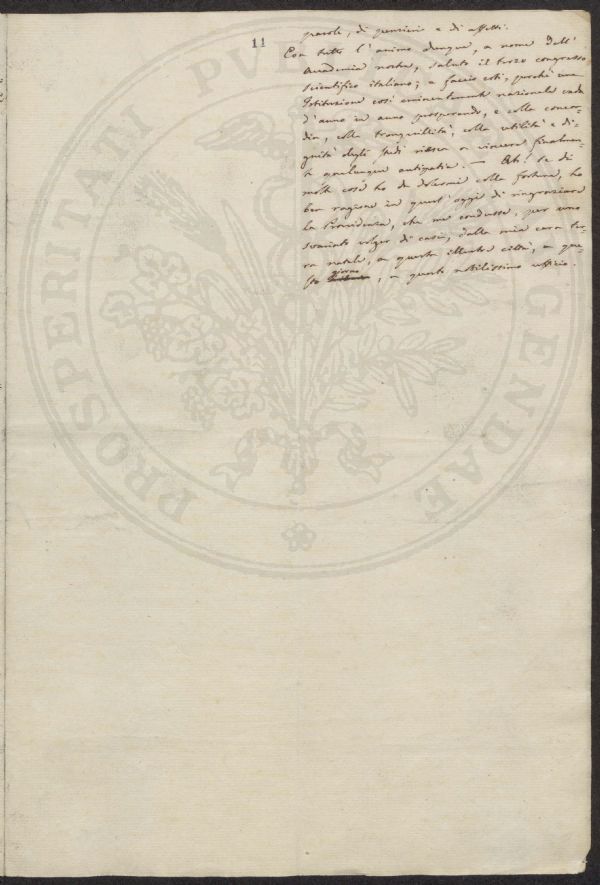 11
parole, di pensieri e di affetti.
Con tutto l'animo dunque, a nome dell'
Accademia nostra, saluto il terzo congresso
scientifico italiano; e faccio voti, perchè una
Istituzione così eminentemente nazionale vada
d'anno in anno prosperando, e colla concor-
dia, colla tranquillità, colla utilità e di-
gnità degli studi riesca a vincere finalmen-
te qualunque antipatia. — Oh! se di
molte cose ho da dolermi colla fortuna, ho
ben ragione in quest'oggi di ringraziare
la Provvidenza, che me condusse, per uno
svariato volger di casi, dalla mia cara ter-
ra natale, a questa illustre città, a que-
sto giorno, a questo nobilissimo ufficio.
PROSPERITATI PVB GENDAE